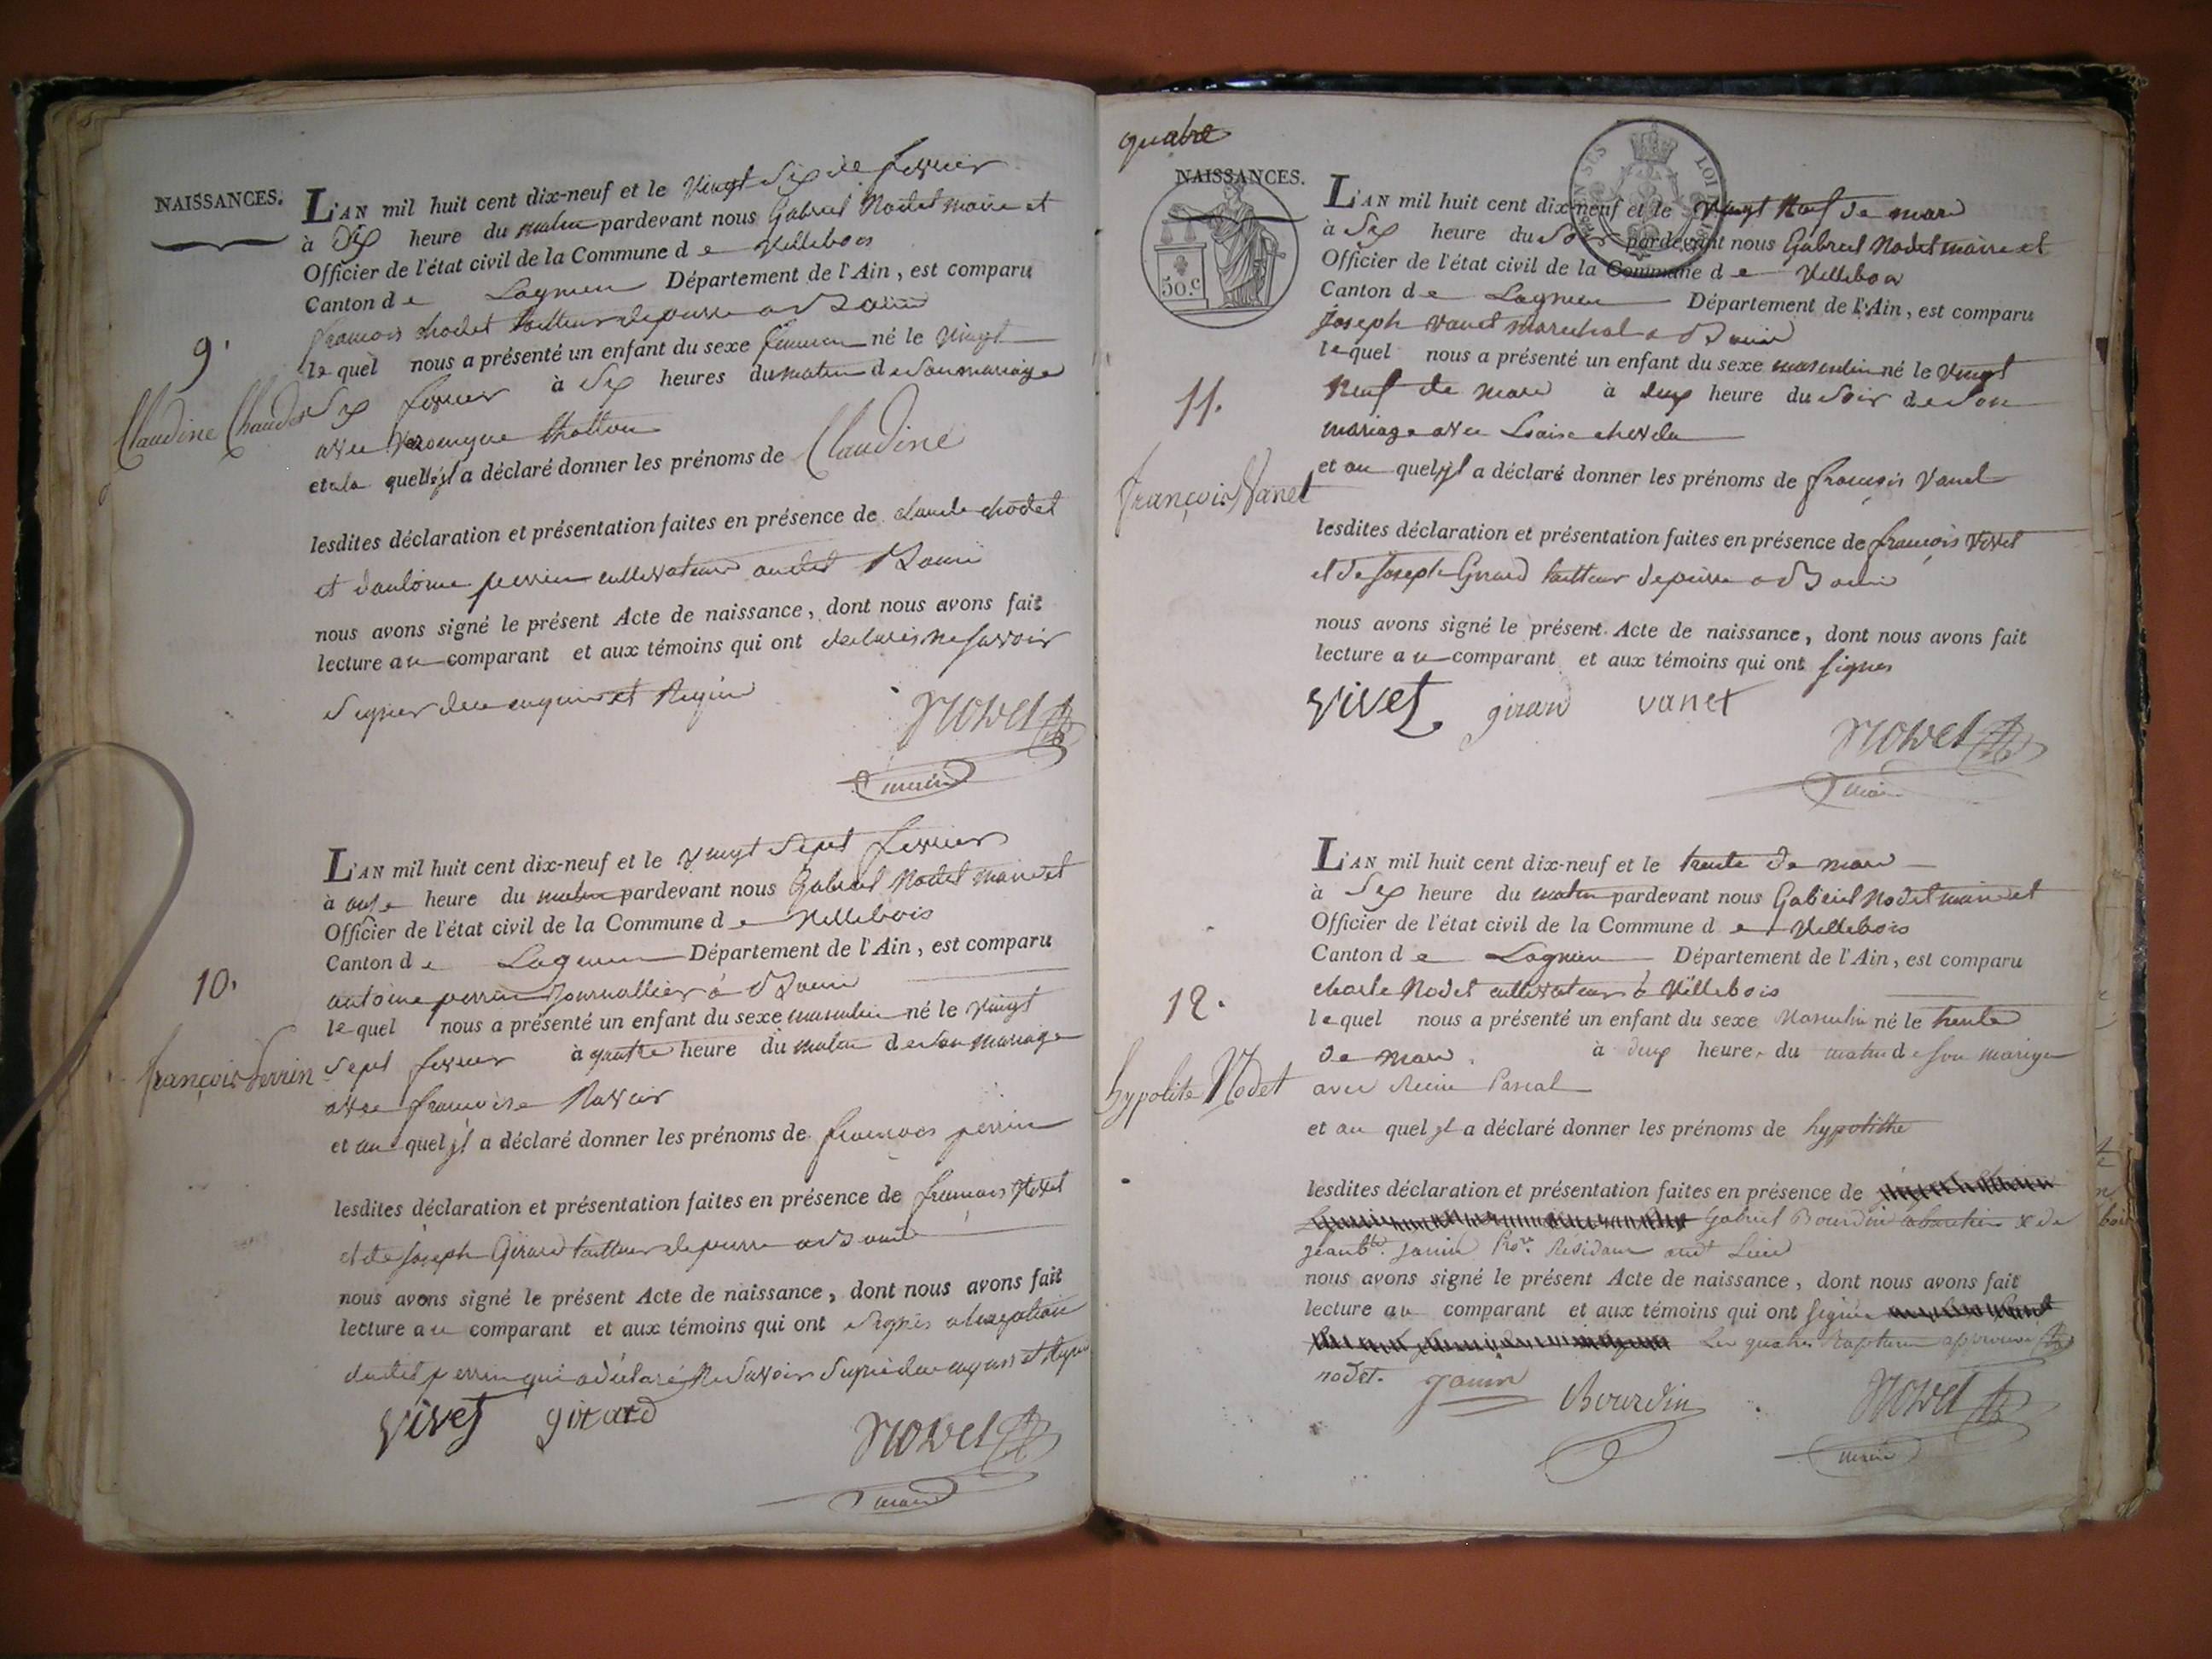 NAISSANCES.
L'AN mil huit cent dix-neuf et le vingt Six de fevrier
à Dix heure du matin pardevant nous Gabriel Nodet maire et
Officier de l'état civil de la Commune d e Villebois
Canton d e Lagnieu Département de l'Ain, est comparu
francois chodet tailleur de pierre a
le quel nous a présenté un enfant du sexe feminin né le vingt
9.
Claudine Chaudet
Six fevrier à Six heures du matin de Son mariage
avec
et a la quelle il a déclaré donner les prénoms de Claudine
lesdites déclaration et présentation faites en présence de claude chodet
et dantoine perrin cultivateurs audit
nous avons signé le présent Acte de naissance, dont nous avons fait
lecture au comparant et aux témoins qui ont declarés ne savoir
Signer de ce enquis et Requis
Nodet
maire
L'AN mil huit cent dix-neuf et le vingt Sept fevrier
à onze heure du matin pardevant nous Gabriel Nodet maire et
Officier de l'état civil de la Commune d e Villebois
Canton d e Lagnieu Département de l'Ain, est comparu
10.
antoine perrin Journallier à
le quel nous a présenté un enfant du sexe masculin né le vingt
françois Perrin
Sept fevrier à quatre heure du matin de Son mariage
avec francoise Ravoir
et au quel il a déclaré donner les prénoms de francois perrin
lesdites déclaration et présentation faites en présence de francois vivet
et de joseph Girard tailleur de pierre a
nous avons signé le présent Acte de naissance, dont nous avons fait
lecture au comparant et aux témoins qui ont Signés
dudit perrin qui a déclaré Ne Savoir Signé de ce enquis et
vivet girard
Nodet
maire
quatre
NAISSANCES.
50.c
LOI
L'AN mil huit cent dix-neuf et le vingt Neuf de mars
à Six heure du Soir pardevant nous Gabriel Nodet maire et
Officier de l'état civil de la Commune d e Villebois
Canton d e Lagnieu Département de l'Ain, est comparu
Joseph vanet marechal a
le quel nous a présenté un enfant du sexe masculin né le vingt
11.
françois Vanet
Neuf de mars à deux heure du Soir de Son
mariage avec
et au quel il a déclaré donner les prénoms de françois vanet
lesdites déclaration et présentation faites en présence de françois vivet
et de Joseph Girard tailleur de pierre a
nous avons signé le présent Acte de naissance, dont nous avons fait
lecture au comparant et aux témoins qui ont signés
vivet girard vanet
Nodet
maire
L'AN mil huit cent dix-neuf et le trente de mars
à Six heure du matin pardevant nous Gabriel Nodet maire et
Officier de l'état civil de la Commune d e Villebois
Canton d e Lagnieu Département de l'Ain, est comparu
12.
charle Nodet cultivateur à Villebois
le quel nous a présenté un enfant du sexe Masculin né le trente
hypolite Nodet
de mars à deux heure du matin de son mariage
avec Reine Pascal
et au quel il a déclaré donner les prénoms de hypolithe
lesdites déclaration et présentation faites en présence de
Gabriel Bourdin cabaretier & de
jean bte. janin Résidant audt Lieu
nous avons signé le présent Acte de naissance, dont nous avons fait
lecture au comparant et aux témoins qui ont signés
Les quatres
nodet. Janin Bourdin
Nodet
maire